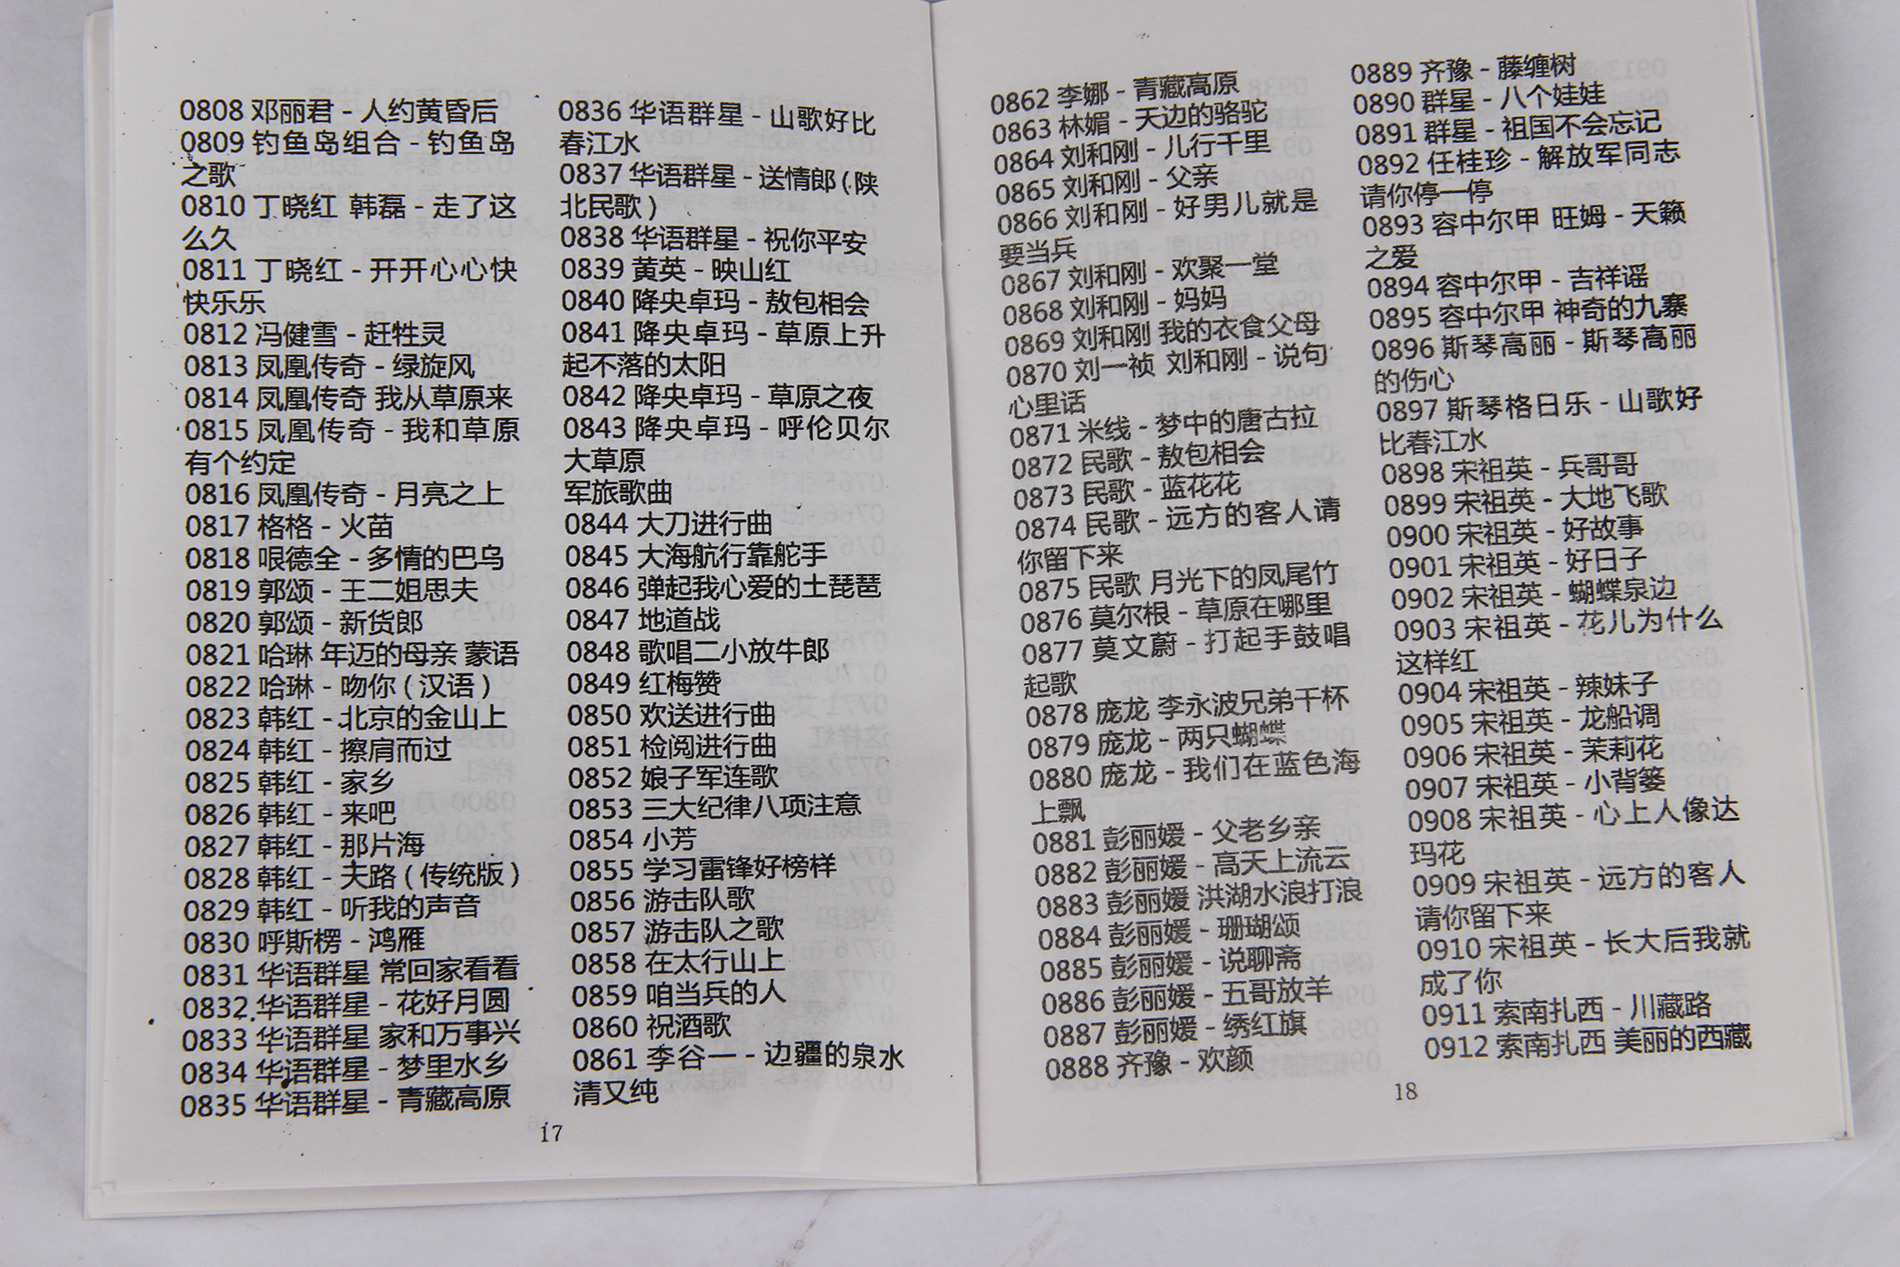 0808 邓丽君 - 人约黄昏后
0809 钓鱼岛组合 - 钓鱼岛
之歌
0810 丁晓红 韩磊 - 走了这
么久
0811 丁晓红 - 开开心心快
快乐乐
0812 冯健雪 - 赶牲灵
0813 凤凰传奇 - 绿旋风
0814 凤凰传奇 我从草原来
0815 凤凰传奇 - 我和草原
有个约定
0816 凤凰传奇 - 月亮之上
0817 格格 - 火苗
0818 哏德全 - 多情的巴乌
0819 郭颂 - 王二姐思夫
0820 郭颂 - 新货郎
0821 哈琳 年迈的母亲 蒙语
0822 哈琳 - 吻你 ( 汉语 )
0823 韩红 - 北京的金山上
0824 韩红 - 擦肩而过
0825 韩红 - 家乡
0826 韩红 - 来吧
0827 韩红 - 那片海
0828 韩红 - 天路 ( 传统版 )
0829 韩红 - 听我的声音
0830 呼斯楞 - 鸿雁
0831 华语群星 常回家看看
0832 华语群星 - 花好月圆
0833 华语群星 家和万事兴
0834 华语群星 - 梦里水乡
0835 华语群星 - 青藏高原
0836 华语群星 - 山歌好比
春江水
0837 华语群星 - 送情郎 ( 陕
北民歌 )
0838 华语群星 - 祝你平安
0839 黄英 - 映山红
0840 降央卓玛 - 敖包相会
0841 降央卓玛 - 草原上升
起不落的太阳
0842 降央卓玛 - 草原之夜
0843 降央卓玛 - 呼伦贝尔
大草原
军旅歌曲
0844 大刀进行曲
0845 大海航行靠舵手
0846 弹起我心爱的土琵琶
0847 地道战
0848 歌唱二小放牛郎
0849 红梅赞
0850 欢送进行曲
0851 检阅进行曲
0852 娘子军连歌
0853 三大纪律八项注意
0854 小芳
0855 学习雷锋好榜样
0856 游击队歌
0857 游击队之歌
0858 在太行山上
0859 咱当兵的人
0860 祝酒歌
0861 李谷一 - 边疆的泉水
清又纯
17
0862 李娜 - 青藏高原
0863 林媚 - 天边的骆驼
0864 刘和刚 - 儿行千里
0865 刘和刚 - 父亲
0866 刘和刚 - 好男儿就是
要当兵
0867 刘和刚 - 欢聚一堂
0868 刘和刚 - 妈妈
0869 刘和刚 我的衣食父母
0870 刘一祯 刘和刚 - 说句
心里话
0871 米线 - 梦中的唐古拉
0872 民歌 - 敖包相会
0873 民歌 - 蓝花花
0874 民歌 - 远方的客人请
你留下来
0875 民歌 月光下的凤尾竹
0876 莫尔根 - 草原在哪里
0877 莫文蔚 - 打起手鼓唱
起歌
0878 庞龙 李永波兄弟干杯
0879 庞龙 - 两只蝴蝶
0880 庞龙 - 我们在蓝色海
上飘
0881 彭丽媛 - 父老乡亲
0882 彭丽媛 - 高天上流云
0883 彭丽媛 洪湖水浪打浪
0884 彭丽媛 - 珊瑚颂
0885 彭丽媛 - 说聊斋
0886 彭丽媛 - 五哥放羊
0887 彭丽媛 - 绣红旗
0888 齐豫 - 欢颜
0889 齐豫 - 藤缠树
0890 群星 - 八个娃娃
0891 群星 - 祖国不会忘记
0892 任桂珍 - 解放军同志
请你停一停
0893 容中尔甲 旺姆 - 天籁
之爱
0894 容中尔甲 - 吉祥谣
0895 容中尔甲 神奇的九寨
0896 斯琴高丽 - 斯琴高丽
的伤心
0897 斯琴格日乐 - 山歌好
比春江水
0898 宋祖英 - 兵哥哥
0899 宋祖英 - 大地飞歌
0900 宋祖英 - 好故事
0901 宋祖英 - 好日子
0902 宋祖英 - 蝴蝶泉边
0903 宋祖英 - 花儿为什么
这样红
0904 宋祖英 - 辣妹子
0905 宋祖英 - 龙船调
0906 宋祖英 - 茉莉花
0907 宋祖英 - 小背篓
0908 宋祖英 - 心上人像达
玛花
0909 宋祖英 - 远方的客人
请你留下来
0910 宋祖英 - 长大后我就
成了你
0911 索南扎西 - 川藏路
0912 索南扎西 美丽的西藏
18